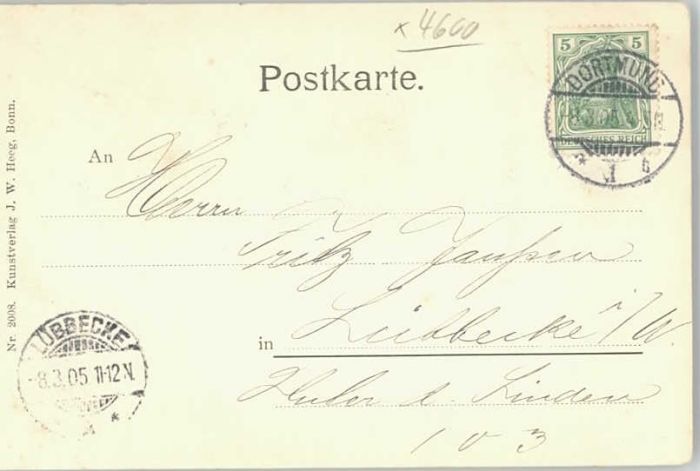 x 4600
Postkarte.
5 5
DORTMUND
8.3.05
DEUTSCHES REICH
1 b
An Herrn
Fritz Janssen
in Lübbecke i/W.
Unter d. Linden
103
LÜBBECKE
-8.3.05 11-12 N.
Nr. 2008. Kunstverlag J. W. Heeg, Bonn.